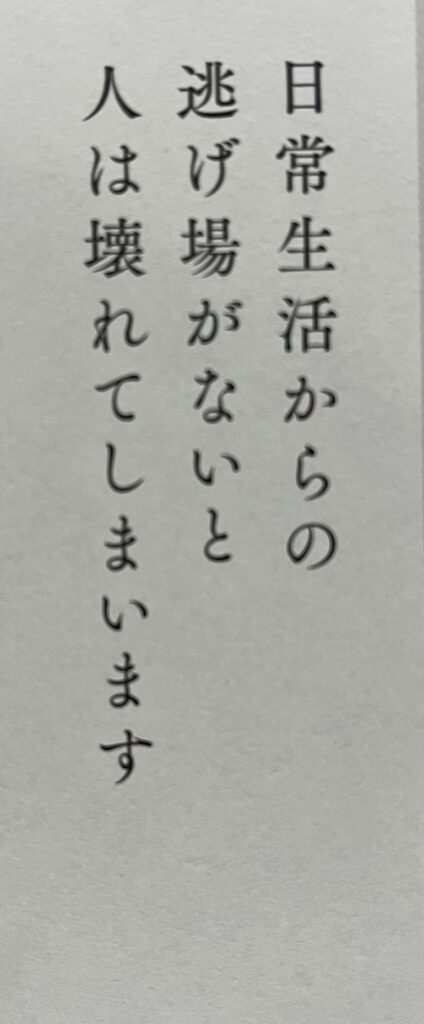 日常生活からの
逃げ場がないと
人は壊れてしまいます